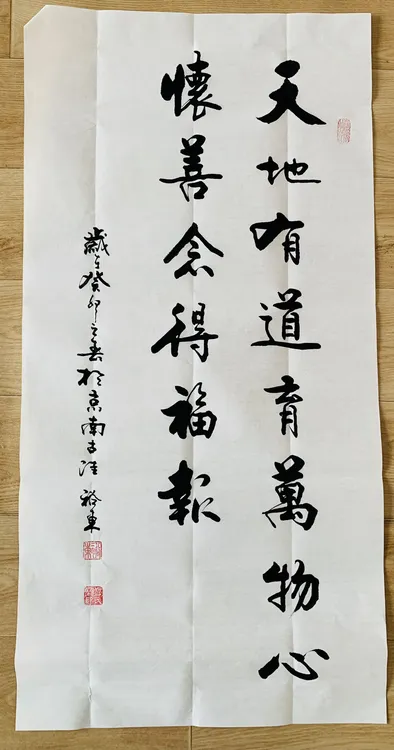 天地有道育萬物心
懷善念得福報
歲在癸卯之春於京南古淮 裕東